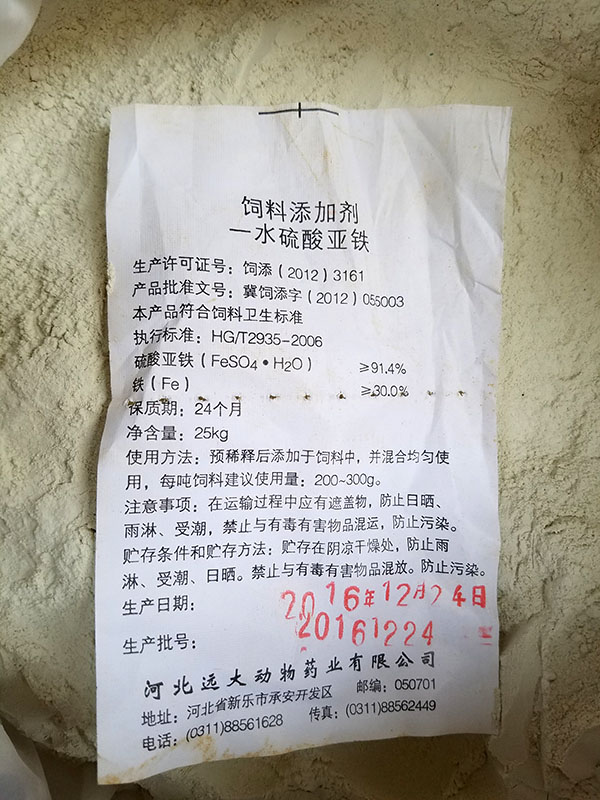 饲料添加剂
一水硫酸亚铁
生产许可证号：饲添（2012）3161
产品批准文号：冀饲添字（2012）055003
本产品符合饲料卫生标准
执行标准：HG/T2935-2006
硫酸亚铁（FeSO4•H2O） ≥91.4%
铁（Fe） ≥30.0%
保质期：24个月
净含量：25kg
使用方法：预稀释后添加于饲料中，并混合均匀使
用，每吨饲料建议使用量：200~300g。
注意事项：在运输过程中应有遮盖物，防止日晒、
雨淋、受潮，禁止与有毒有害物品混运，防止污染。
贮存条件和贮存方法：贮存在阴凉干燥处，防止雨
淋、受潮、日晒。禁止与有毒有害物品混放。防止污染。
生产日期： 2016年12月24日
生产批号： 20161224
河北远大动物药业有限公司
地址：河北省新乐市承安开发区 邮编：050701
电话：(0311)88561628 传真：(0311)88562449